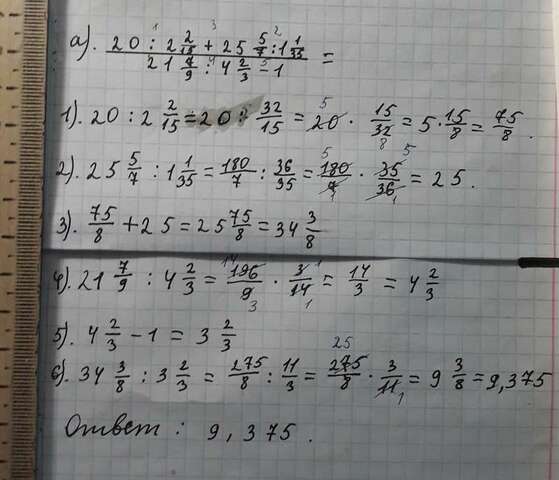 а). (20 : 2 2/15 + 25 5/7 : 1 1/35) / (21 7/9 : 4 2/3 - 1) =
1). 20 : 2 2/15 = 20 : 32/15 = 20 · 15/32 = 5 · 15/8 = 75/8.
2). 25 5/7 : 1 1/35 = 180/7 : 36/35 = 180/7 · 35/36 = 25.
3). 75/8 + 25 = 25 75/8 = 34 3/8
4). 21 7/9 : 4 2/3 = 196/9 · 3/14 = 14/3 = 4 2/3
5). 4 2/3 - 1 = 3 2/3
6). 34 3/8 : 3 2/3 = 275/8 : 11/3 = 275/8 · 3/11 = 9 3/8 = 9,375
Ответ: 9,375.